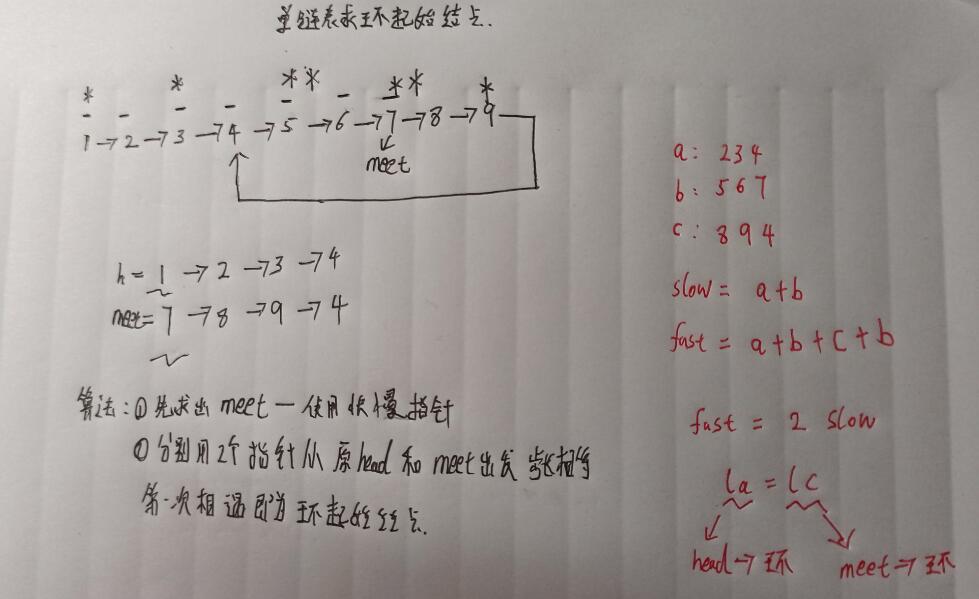 单链表求环起始结点.
* * * * * * *
- - - - - - -
1 → 2 → 3 → 4 → 5 → 6 → 7 → 8 → 9
meet
h = 1 → 2 → 3 → 4
meet = 7 → 8 → 9 → 4
算法: ① 先求出 meet — 使用快慢指针
② 分别用2个指针从原head和meet出发 步长相等
第一次相遇即为环起始结点.
a: 2 3 4
b: 5 6 7
c: 8 9 4
slow = a+b
fast = a+b+c+b
fast = 2 slow
la = lc
head → 环 meet → 环